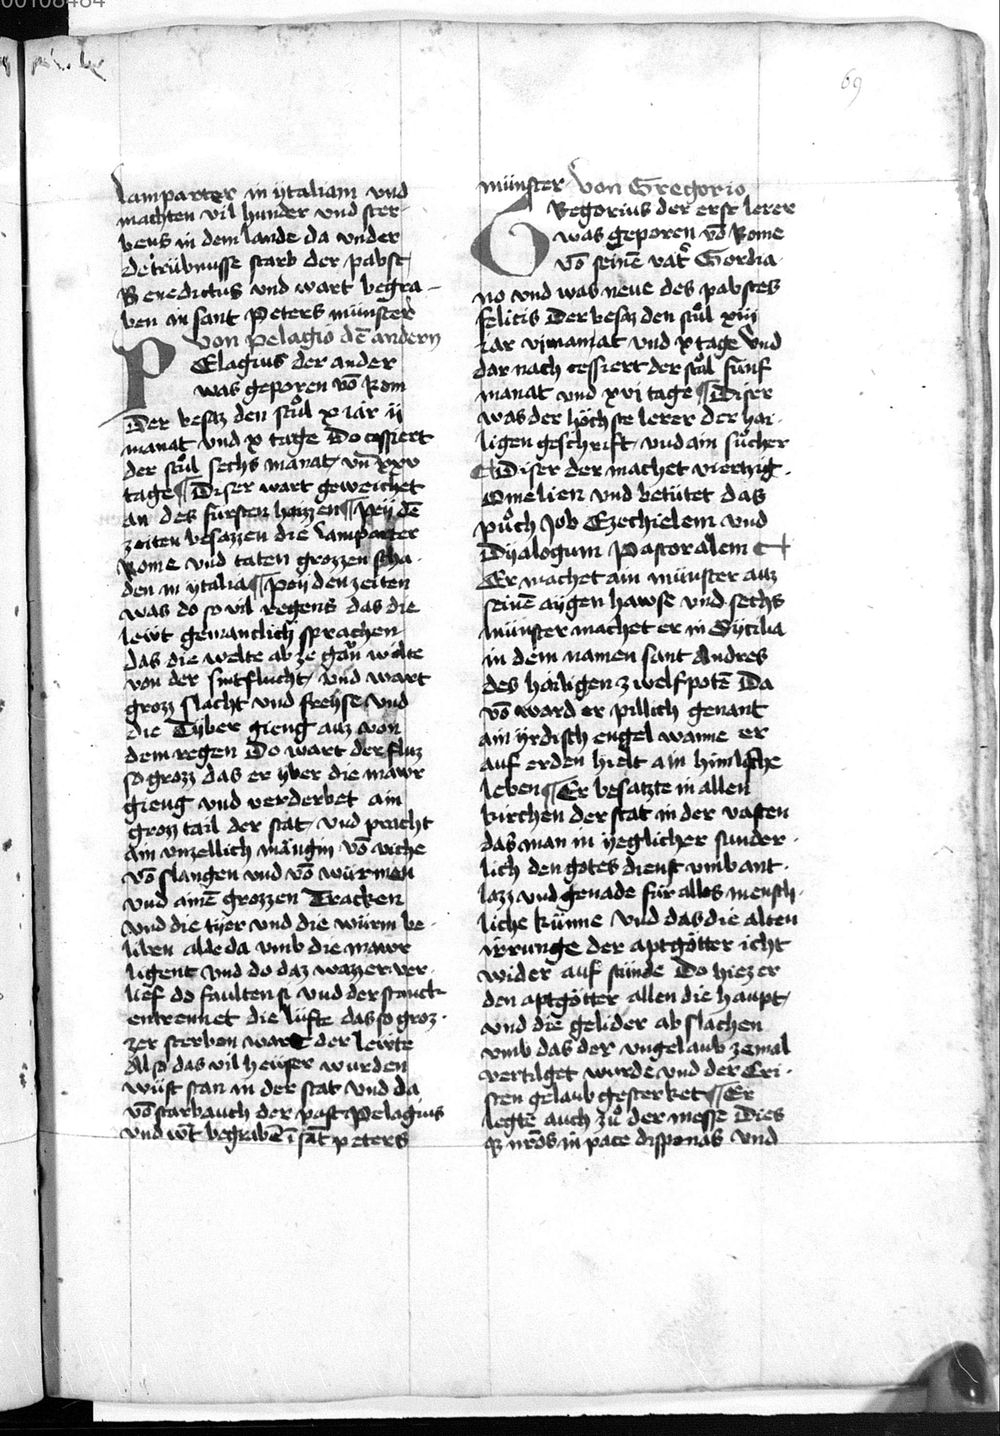 00108484
69
lamparter in ytaliam vnd
machten vil hunder vnd ster¬
bens in dem lande da vnder
de trübnusse starb der pabst
Benedictus vnd wart begra¬
ben in sant Peters münster
von pelagio dē andern
PElagius der ander
was geporen vō Rom
Der besaz den stůl x iar ij
manat vnd x tage Do cessiert
der stůl sechs manat vn̄ xxv
tage ¶ Diser wart geweichet
an des fursten hayzen ¶ Pey dē
zeiten besazzen die lamparter
Rome vnd taten grozzen scha¬
den in ytalia ¶ Pey den zeiten
was do so vil regens das die
lewt gemanclich sprachen
das die welte ab ze gan wolte
von der sintflucht vnd wart
grozz slacht vnd freyse vnd
die Tyber gieng auz von
dem regen Do wart der fluz
so grozz das er vber die mawr
gieng vnd verderbet ain
grozz tail der stat vnd pracht
ain vnzellich mängin vō viche
vō slangen vnd vō würmen
vnd ainē grozzen Tracken
vnd die tyer vnd die würm be¬
liben alle da vmb die mawr
ligent vnd do daz wazzer ver¬
lief do faulten si vnd der stanck
entrennet die lüfte das so groz¬
zer sterben wart der lewte
Also das vil hewser wurden
wüst stan in der stat vnd da
vō starb auch der past Pelagius
vnd wt begrabē ī sāt peters
münster von Gregorio
GRegorius der erst lerer
was geporen vō Rome
vō seinē vat͛ Gordia
no vnd was neue des pabstes
felicis Der besaz den stůl xiij
iar vj manat vnd x tage vnd
dar nach cessiert der stůl fünf
manat vnd xvi tage ¶ Diser
was der höchste lerer der hai¬
ligen geschrift vnd ain sůcher
¶ Diser der machet viertzig
Omelien vnd betütet das
půch Job Ezechielem vnd
Dyalogum Pastoralem
Er machet ain münster auz
seinē aygen hawse vnd sechs
münster machet er in Sycilia
in dem namen sant Andres
des hailigen zwelfpotē Da
vō ward er pillich genant
ain yrdisch engel wanne er
auf erden hielt ain himlische
leben ¶ Er besatzte in allen
kirchen der stat in der vasten
das man in yeglicher sunder¬
lich den gotes dienst vmb ant¬
lazz vnd genade für alles mensch¬
liche künne vnd das die alten
irrunge der aptgötter icht
wider auf stünde Do hiez er
den aptgötter allen die haupt
vnd die gelider ab slachen
vmb das der vngelaub zemal
vertilget wurde vnd der Cri¬
sten gelaub gesterket ¶ Er
legte auch zů der messe Dies
qʒ nr̄os in pace disponas vnd